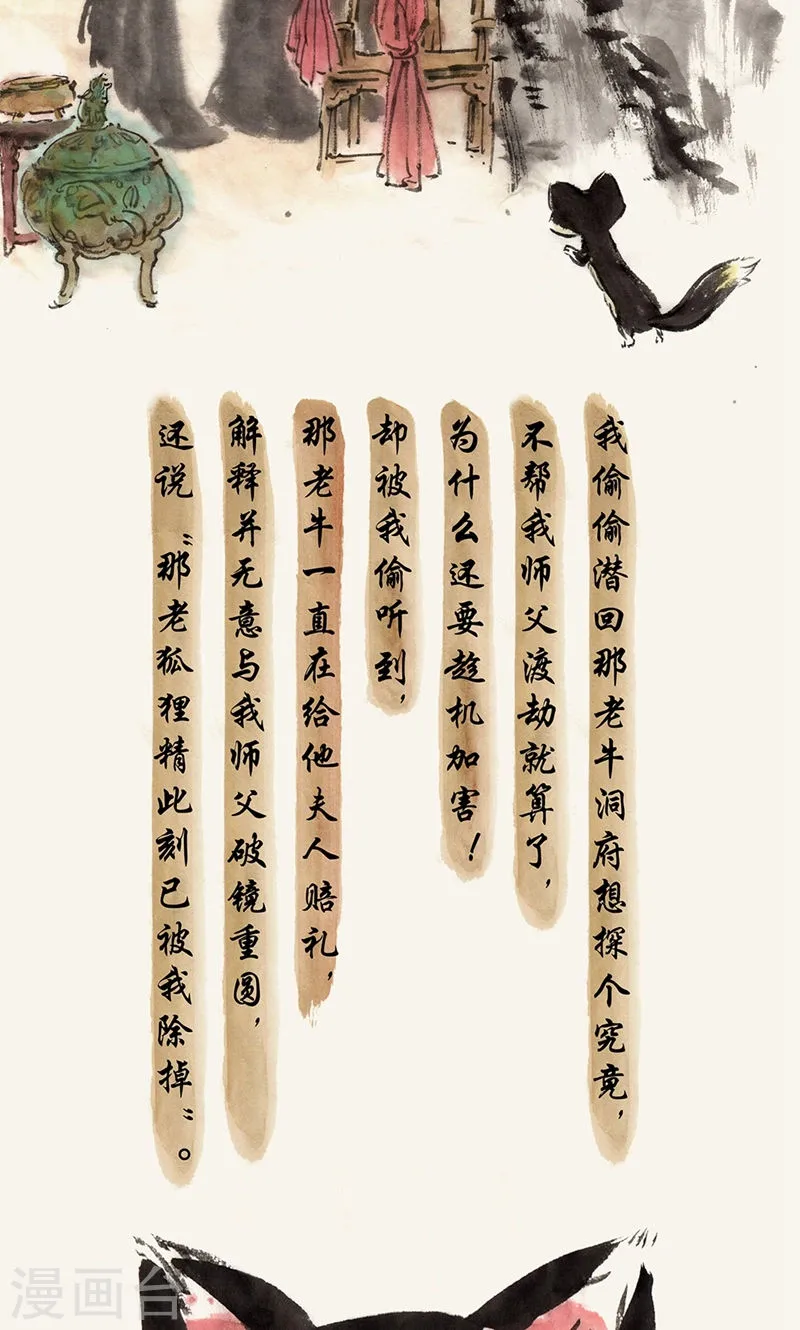 我偷偷潜回那老牛洞府想探个究竟，
不帮我师父渡劫就算了，
为什么还要趁机加害！
却被我偷听到，
那老牛一直在给他夫人赔礼，
解释并无意与我师父破镜重圆，
还说“那老狐狸精此刻已被我除掉”。
漫画台